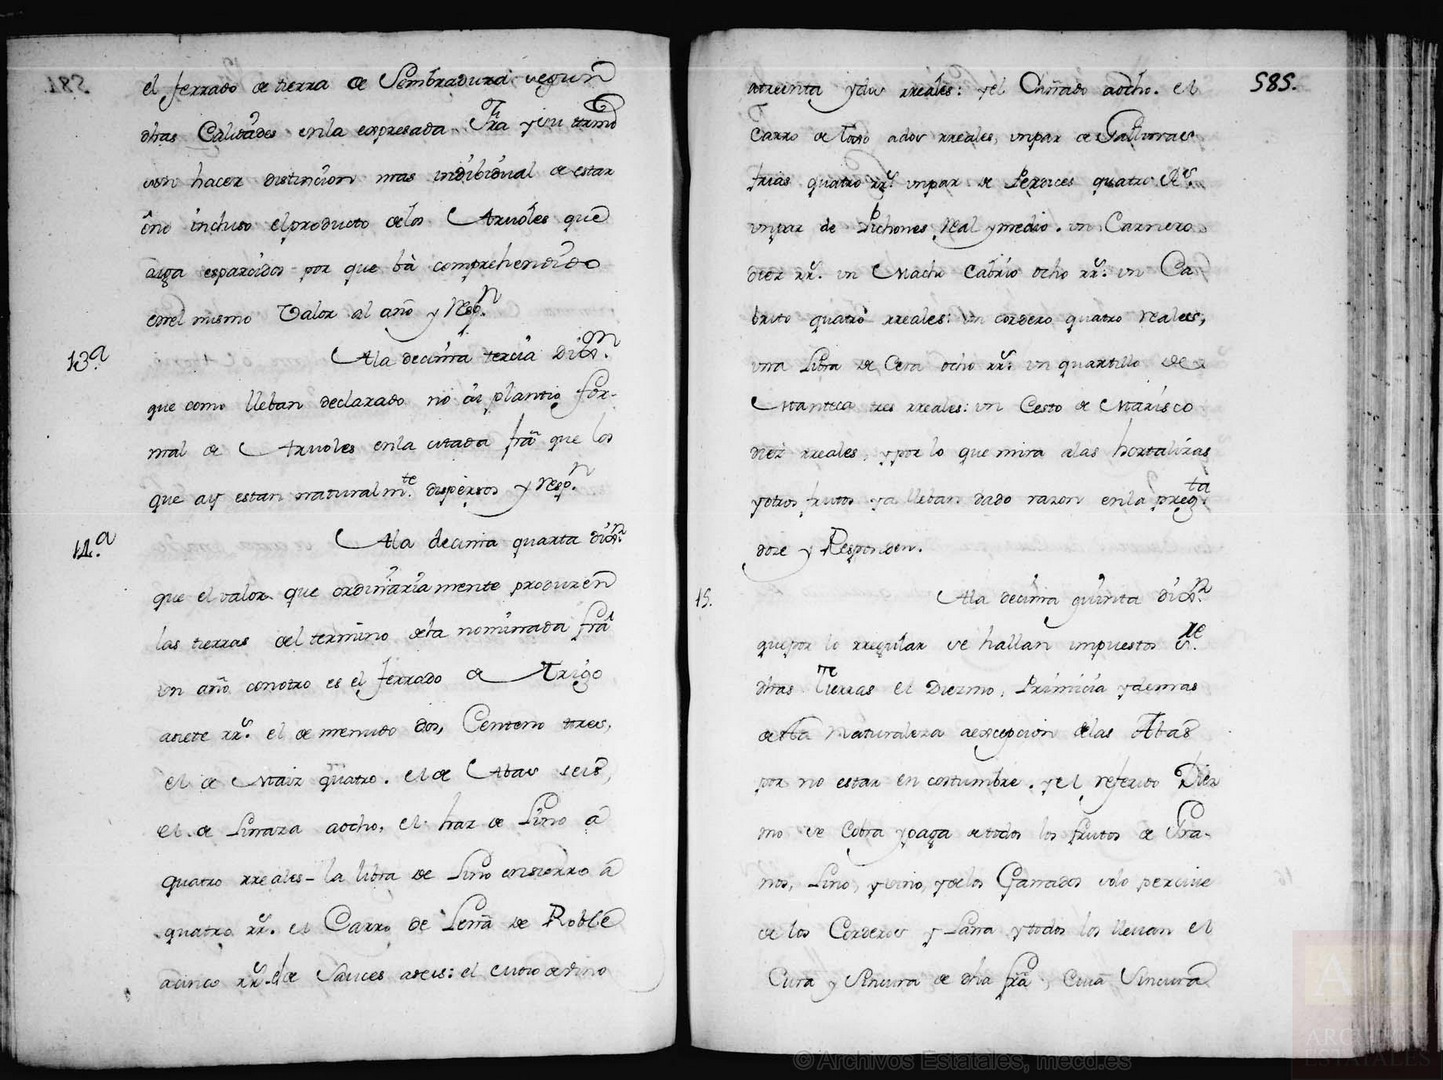 el ferrado de tierra de Sembradura segun
dhas Calidades enla expresada Fra y su termo
son hacer distincion mas indibidual de estar
óno incluso el producto delos Arvoles que
aiga esparcidos por que bà comprehendido
conel mismo Valor al año y resp.n
13ª Ala decima tercia Dix.on
que como lleban declarado no ai plantio for-
mal de Arvoles enla citada fra que los
que ay estan naturalm.te dispersos y resp.n
14.ª Ala decima quarta dix.on
que el valor que ordinariamente producen
las tierras del termino dela nominada fra
un año conotro es el ferrado de Trigo
asiete rr.s el de menudo dos, Centeno tres,
el de Maiz quatro. el de Abas seis,
el de Linaza aocho, el haz de Lino a
quatro rreales- la libra de Lino enserro a
quatro rr.s el Carro de Leña de Roble
acinco rr.s el de Sauces aseis: el de vino
585.
atreinta y dos rreales: y el aocho. el
Carro de Tojo ados rreales, unpar de Gallinas
frias quatro rr.s unpar de Perdices quatro R.s
unpar de Pichones real y medio. un Carnero
diez rr.s un Macho Cabrio ocho rr.s un Ca
brito quatro rreales: un cordero quatro reales,
una Libra de Cera ocho rr.s un quartillo de
Manteca tres rreales: un Cesto de Marisco
diez rreales, y por lo que mira alas hortalizas
yotros frutos ya lleban dado razon enla preg.ta
doze y Responden.
15. Ala decima quinta dix.on
que por lo rregular se hallan impuestos s.re
dhas Tierras el Diezmo, Primicia y demas
desta naturaleza aexcepcion delas Abas
por no estar en costumbre. y el referido Diez
mo se cobra y paga de todos los frutos de Gra-
nos, Lino, y vino, y delos Ganados solo percive
de los Corderos y Lana y todos los llevan el
Cura y Sincura de dha fra, Cuia Sincura